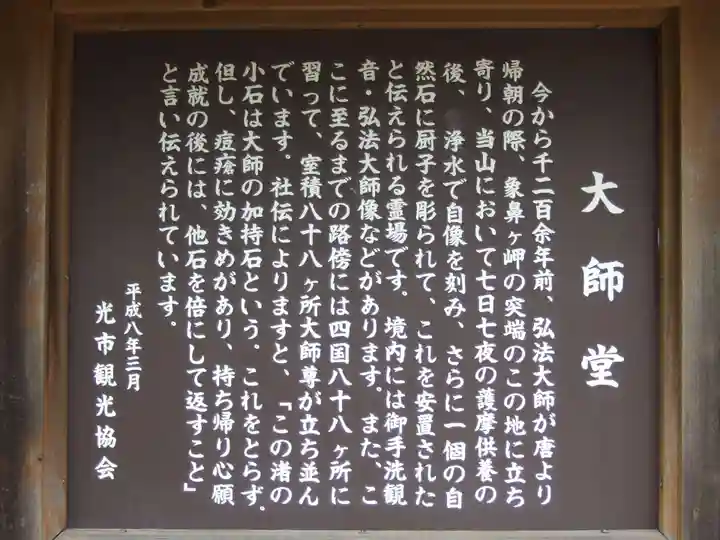 大師堂
今から千二百余年前、弘法大師が唐より
帰朝の際、象鼻ヶ岬の突端のこの地に立ち
寄り、当山において七日七夜の護摩供養の
後、浄水で自像を刻み、さらに一個の自
然石に厨子を彫られて、これを安置された
と伝えられる霊場です。境内には御手洗観
音・弘法大師像などがあります。また、こ
こに至るまでの路傍には四国八十八ヶ所に
習って、室積八十八ヶ所大師尊が立ち並ん
でいます。社伝によりますと、「この渚の
小石は大師の加持石という。これをとらず.
但し、痘瘡に効きめがあり、持ち帰り心願
成就の後には、他石を倍にして返すこと」
と言い伝えられています。
平成八年三月
光市観光協会